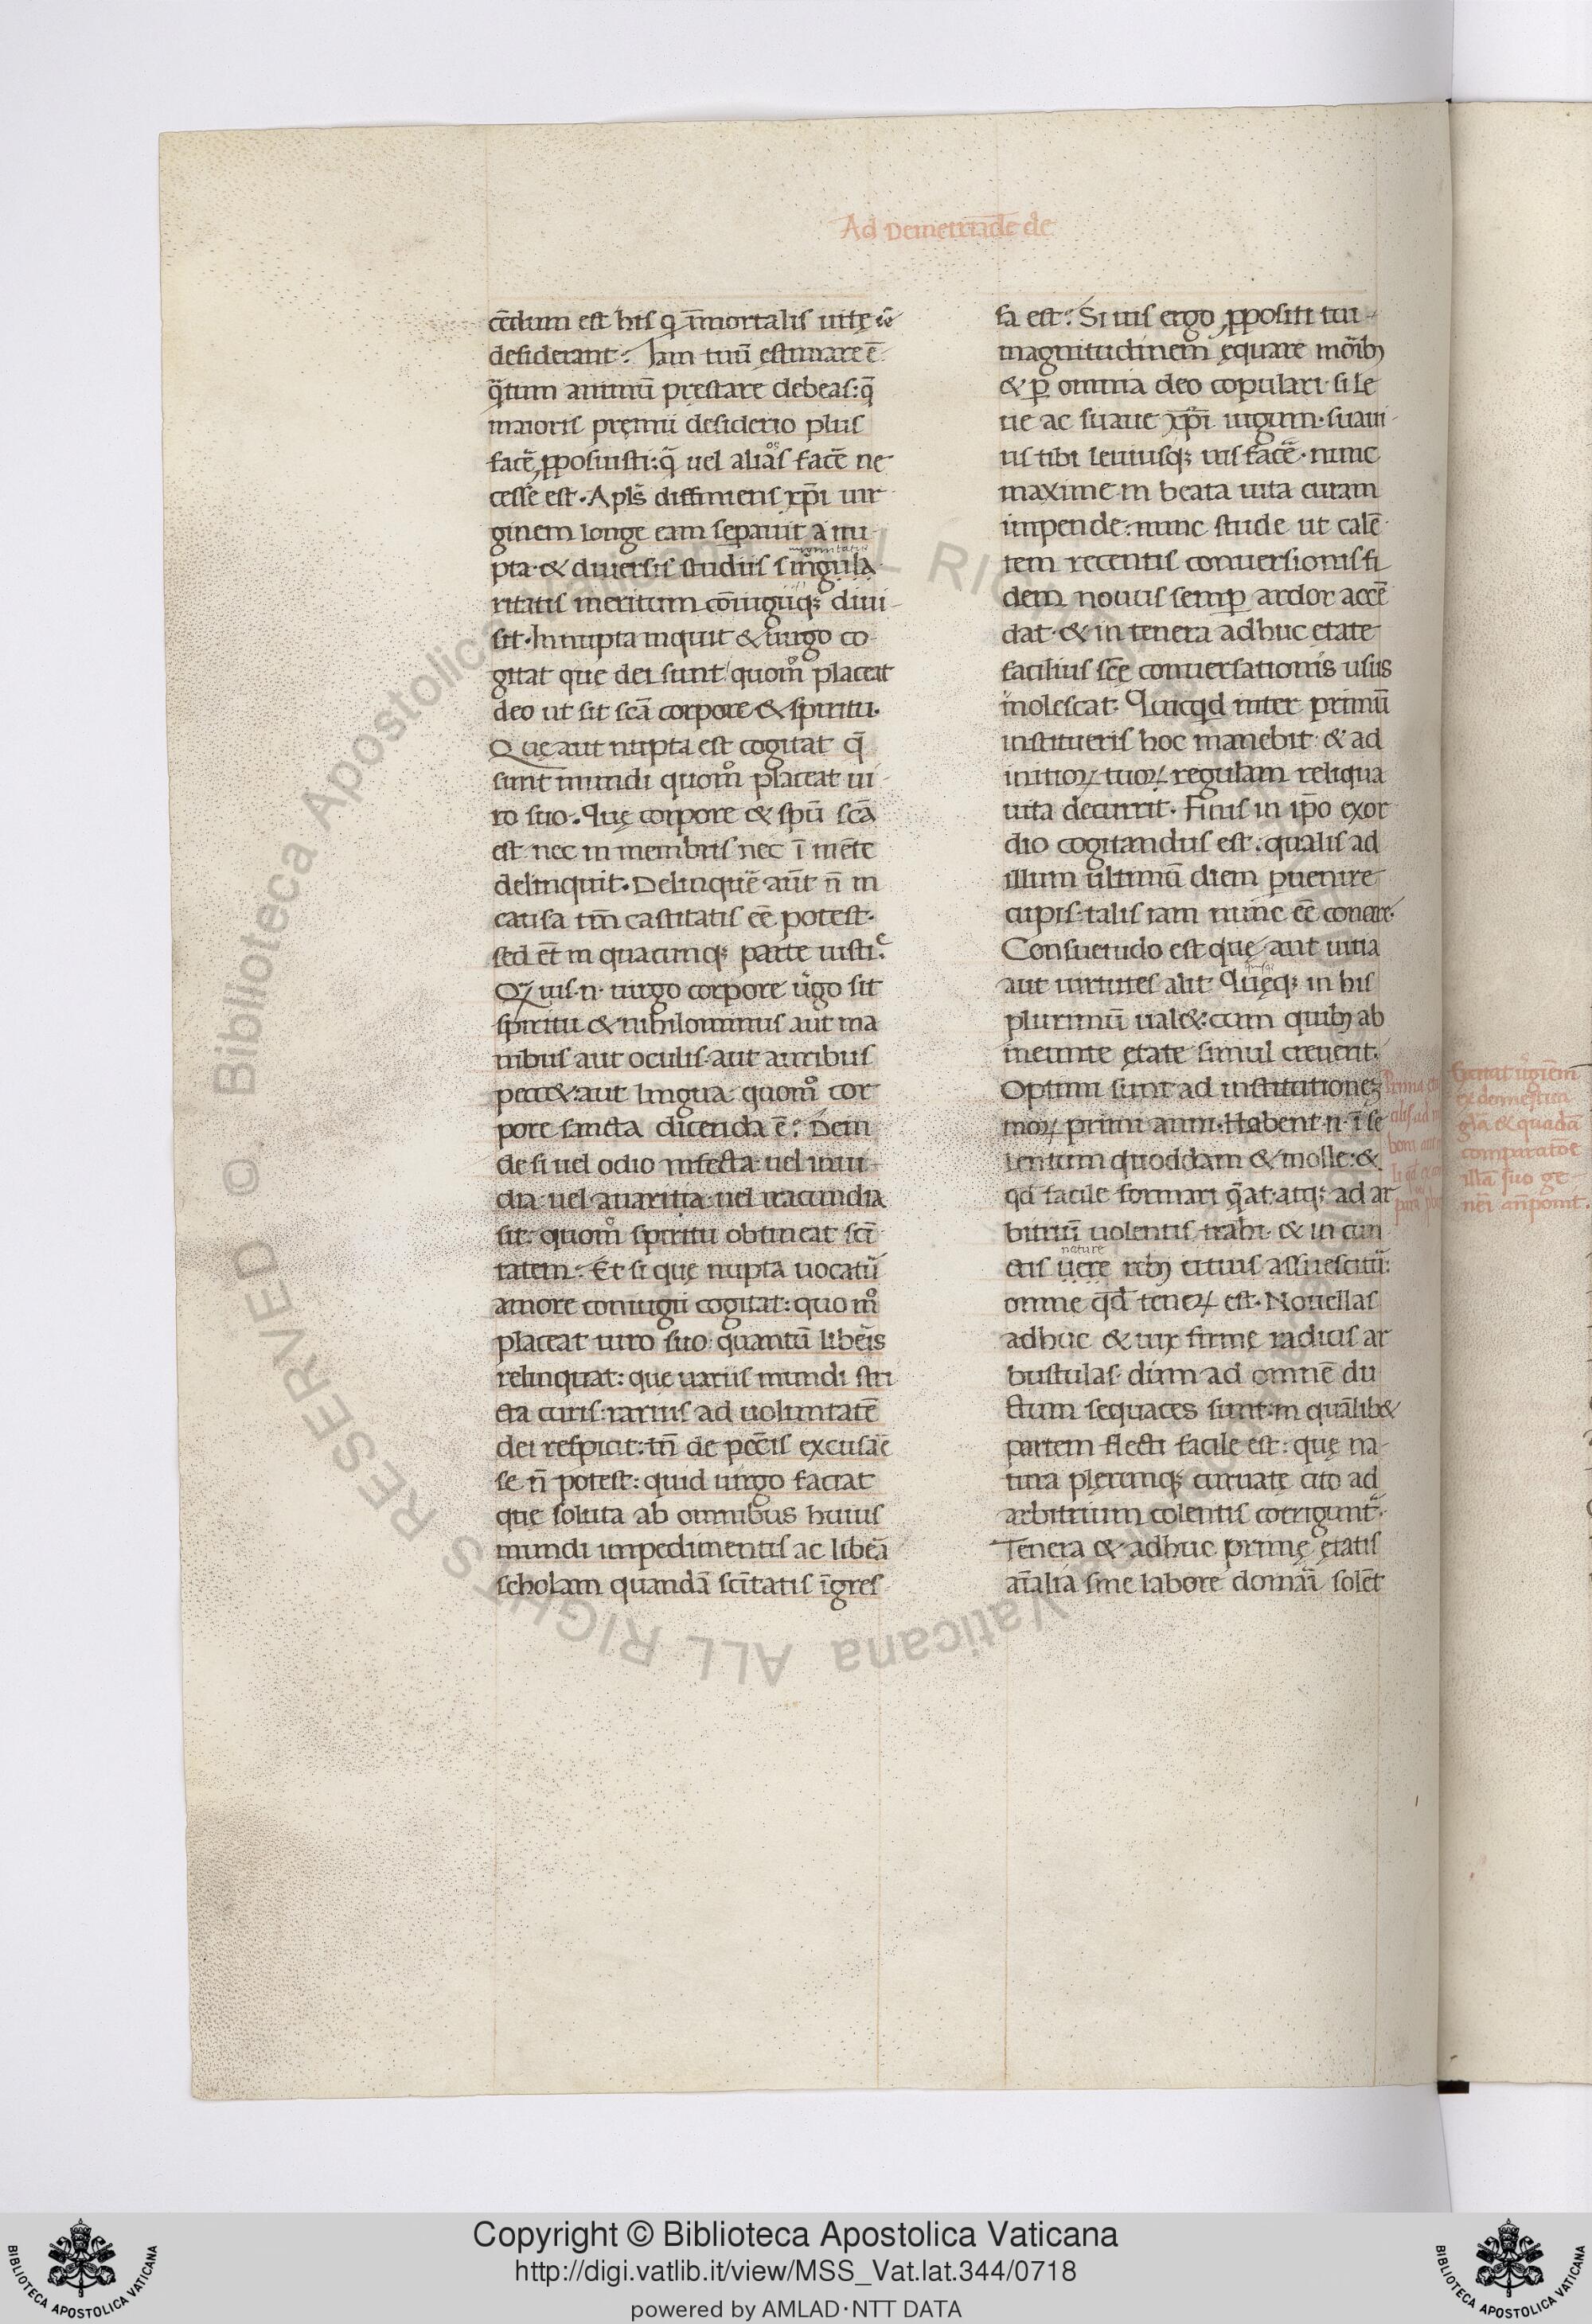 Ad Demetriadē de
cēdum est his q̄ īmortalis uitę iē
desiderant: Iam tuū ęstimare ē
q̄tum animū prestare debeas: q̄
maioris pręmii desiderio plus
facē ꝓposuisti: q̄ uel aliaſ facē ne
cesse est. Apls̄ diffiniens xp̄i uir
ginem longe eam sepauit a nu
pta· & diuersis studiis singula
ritatis meritum cōiugiiqꝫ diui
sit. Innupta inquit & uirgo co
gitat que dei sunt quom̊ placeat
deo ut sit scā corpore & spiritu.
Que aut nupta est cogitat q̄
sunt mundi quom̊ placeat ui
ro suo. Quę corpore & spū scā
est nec in membris nec ī mēte
delinquit. Delinquē aūt n̄ in
causa tm̄ castitatis eē potest.
sed ēt in quacunqꝫ parte iusticͤ
Qꝫuis ·n· uirgo corpore ūgo sit
spiritu & nihilominus aut ma
nibus aut oculis aut auribus
pecc&: aut lingua quom̊ cor
pore sancta dicenda ē? Dein
de si uel odio infecta uel inui
dia uel auaritia uel iracundia
sit: quom̊ spiritu obtineat scī
tatem. Et si que nupta uocatū
amore coniugii cogitat: quo m̊
placeat uiro suo quantū libēis
relinquat: que uariis mundi stri
cta curis: rarius ad uoluntatē
dei respicit: tn̄ de pecc̄is excusaē
se n̄ potest: quid uirgo faciat
que soluta ab omnibus huius
mundi impedimentis ac libeā
scholam quandā scītatis īgres
sa est? Si uis ergo ꝓpositi tui
magnitudinem ęquare mōibꝫ
& ꝑ omnia deo copulari· si le
ue ac suaue xp̄i iugum· suaui
us tibi leuiusqꝫ uis facē· nunc
maxime in beata uita curam
impende: nunc stude ut calē
tem recentis conuersionis fi
dem nouus semꝑ ardor accē
dat· & in tenera adhuc etate
facilius scē conuersationis usus
inolescat. Quicqd inter primū
institueris hoc manebit & ad
initioꝝ tuoꝝ regulam reliqua
uita decurrit. Finis in ip̄o exor
dio cogitandus est: qualis ad
illum ultimū diem ꝑuenire
cupis: talis iam nunc eē conare.
Consuetudo est que aut uitia
aut uirtutes alit Quęqꝫ in his
plurimū ual&: cum quibꝫ ab
ineunte ętate simul creuerit.
Optimi sunt ad institutioneꝫ
moꝝ primi anni. Habent ·n· ī se
lentum quoddam & molle: &
qd facile formari q̄at· atqꝫ ad ar
bitriū uolentis trahi· & in cun
nature
ctis uere rebꝫ citius assuescitū:
omne q̄d teneꝝ est. Nouellas
adhuc & uix firmę radicis ar
bustulas dum ad omnē du
ctum sequaces sunt in quālib&
partem flecti facile est: que na
tura plerunqꝫ curuatę cito ad
arbitrium colentis corrigunt̄.
Tenera & adhuc primę ętatis
aīalia sine labore domāi solēt
ex domestica
glā & quadā
comparatōe
illā suo ge
nēi an̄ponit.
Biblioteca Apostolica Vaticana ALL RIGHTS RESERVED ©
Copyright © Biblioteca Apostolica Vaticana
http://digi.vatlib.it/view/MSS_Vat.lat.344/0718
powered by AMLAD·NTT DATA
BIBLIOTECA APOSTOLICA VATICANA
BIBLIOTECA APOSTOLICA VATICANA